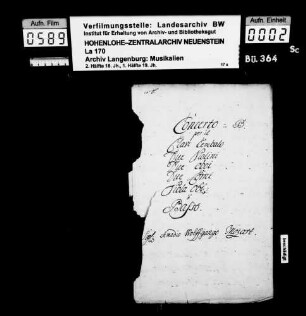 Aufn. Film
0589
Verfilmungsstelle: Landesarchiv BW
Institut für Erhaltung von Archiv- und Bibliotheksgut
HOHENLOHE-ZENTRALARCHIV NEUENSTEIN
La 170
Archiv Langenburg: Musikalien
2. Hälfte 18. Jh., 1. Hälfte 19. Jh.
17 x
Aufn. Einheit
0002
Sc
Bü. 364
Concerto
per il
Clavi Cembalo
Due Violini
Due Oboi
Due Corni
Viola
Basso.
Wolffgango Mozart.